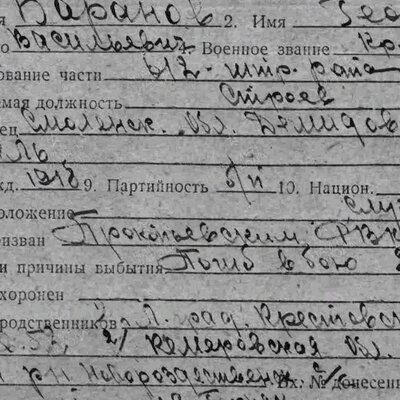 я Баранов 2. Имя Гео
о Васильевич 4. Военное звание Кр
ование части 612 - штр. рота
емая должность Строев
ец Смоленск. обл. Демидов
ль
жд. 1918 9. Партийность б/п 10. Национ.
оложение слу
ризван Прокопьевским РВК
и причины выбытия Погиб в бою
хоронен
родственников 1. Л. град, Крестовс
2/ Кемеровская обл.
р-н Новорождественск Вх. № донесен